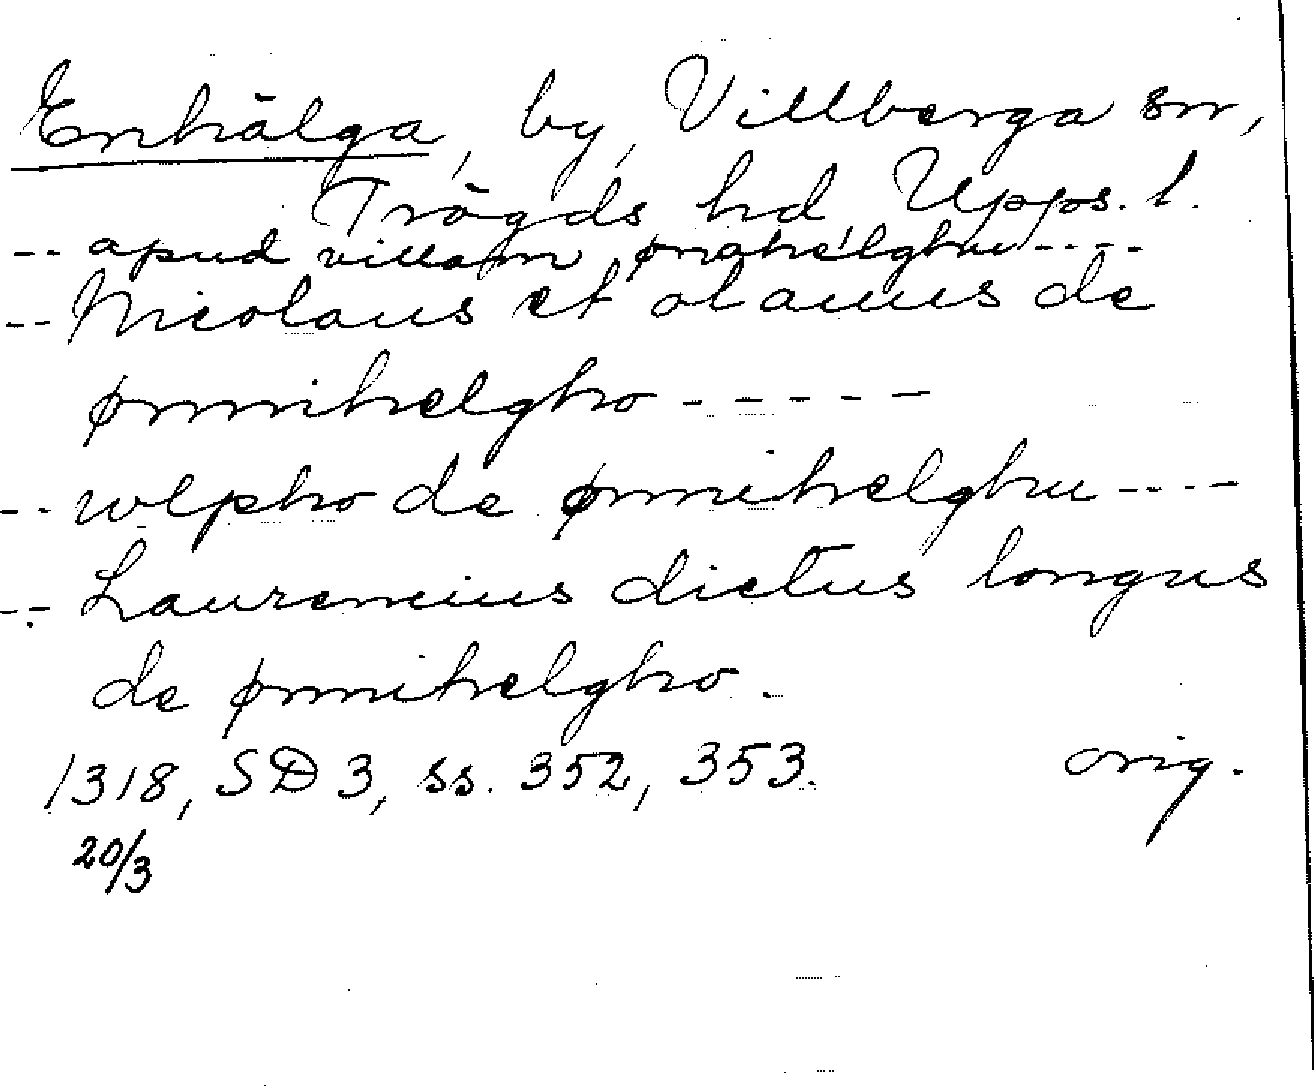 Enhälga, by, Villberga sn,
Trögds hd Upps. l.
-- apud villam ønahélghu ----
-- Nicolaus et olauus de
ønnihelgho -----
-- wlpho de ønnihelghu ----
-- Laurencius dictus longus
de ønnihelgho.
1318, SD 3, ss. 352, 353. orig.
20/3